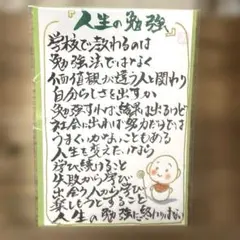 『人生の勉強』
学校で教わるのは
勉強法ではなく
価値観が違う人と関わり
自分らしさを出すか
勉強すれば結果は出るけど
社会に出れば努力だけでは
うまくいかないこともある
人生を変えたいなら
学び続けること
失敗から学び
出会う人から学び
楽しもうとすること
人生の勉強に終わりはない